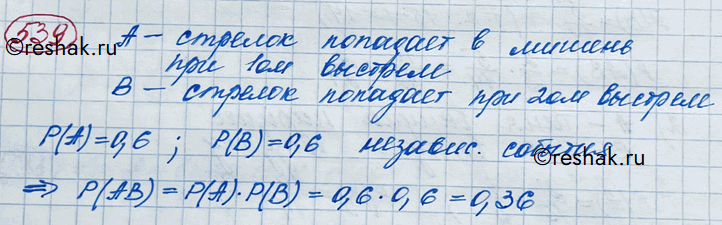 539 А – стрелок попадает в мишень
©reshak.ru
при 1ом выстрел
В – стрелок попадает при 2ом выстрел
P(A)=0,6 ; P(B)=0,6 независ. события
©reshak.ru
⇒ P(AB) = P(A)·P(B) = 0,6·0,6 = 0,36